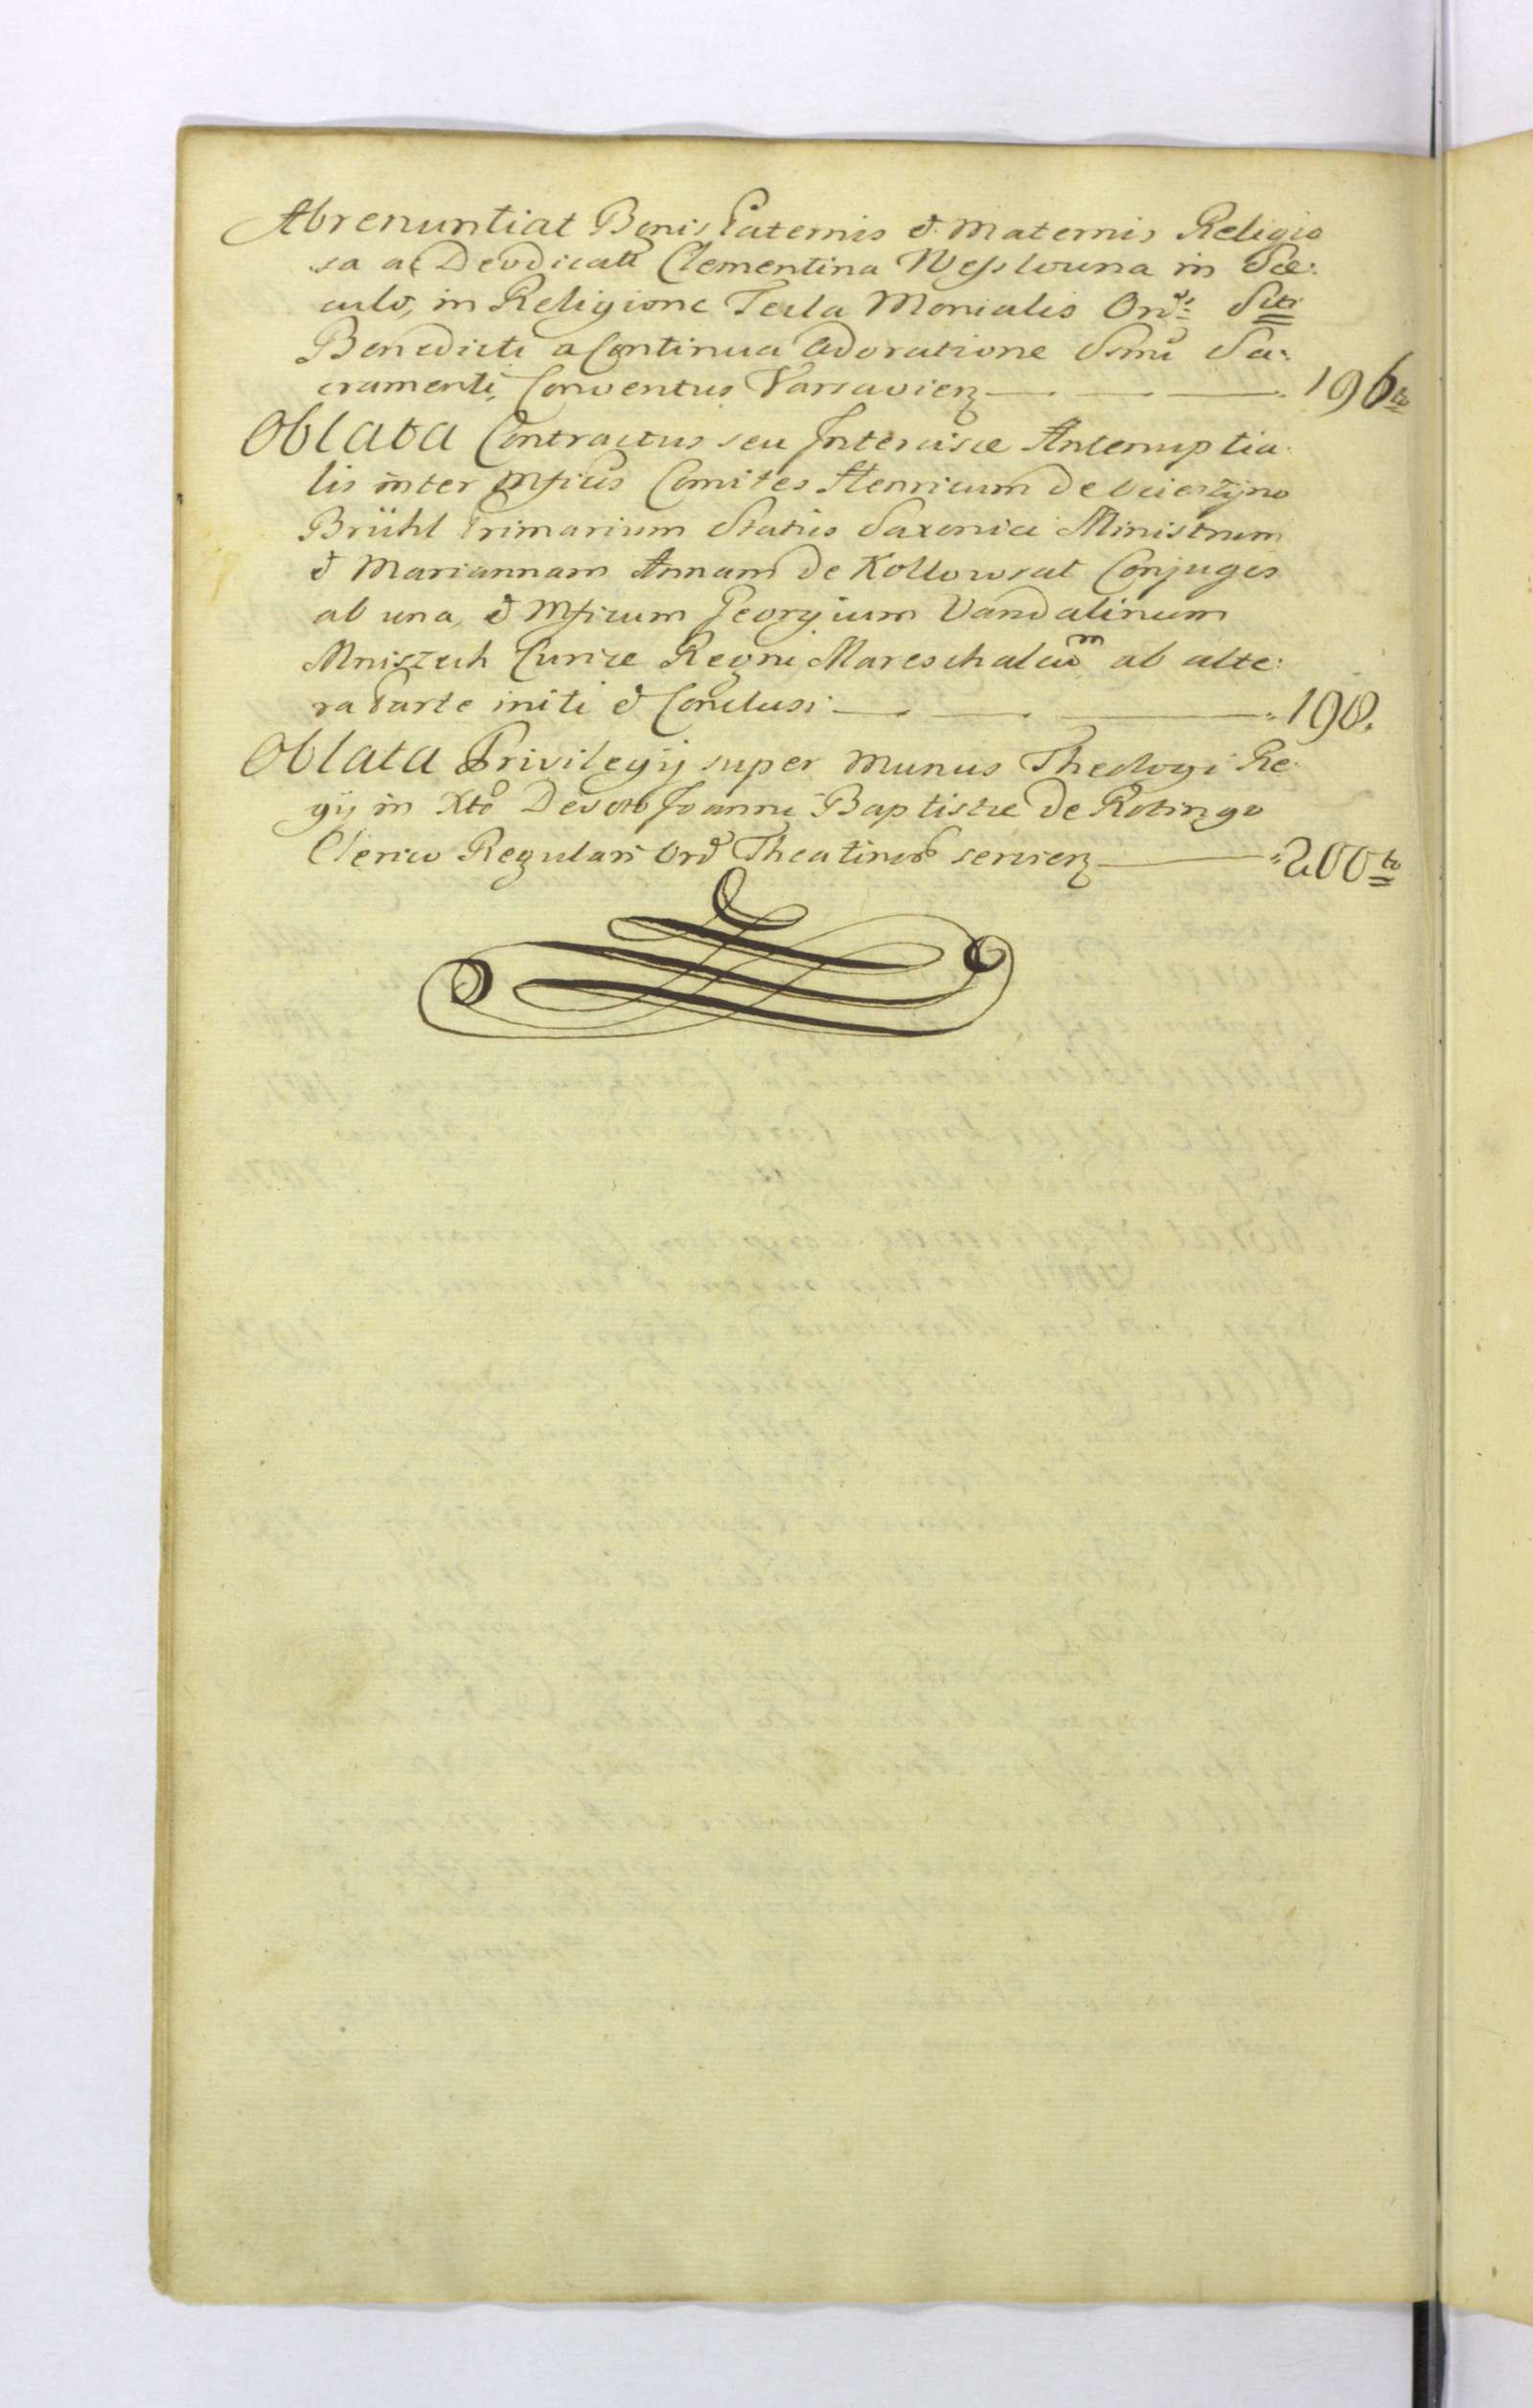 Abrenuntiat Bonis Paternis & Maternis Religio
sa ac Deodicata Clementina Wesslowna in Sæ:
culo, in Religione Tecla Monialis Ordis Sti
Benedicti a Continua Adoratione SSmi Sa:
cramenti, Conventus Varsavien 196to
Oblata Contractus seu Intercisæ Antenuptia:
lis inter Mficos Comites Henricum De
Brühl Primarium Status Saxonici Ministrum
& Mariannam Annam De Kollowrat Conjuges
ab una, & Mficum Georgium Vandalinum
Mniszech Curiæ Regni Mareschalcum ab alte:
ra Parte initi & Conclusi 198.
Oblata Privilegij super Munus Theologi Re:
gij in Xto Devoto Joanni Baptistæ De Rotingo
Clerico Regulari Ord Theatinor servien 200to